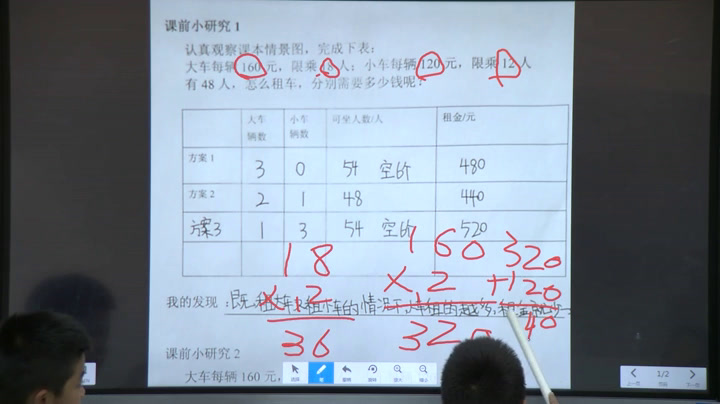 课前小研究1
认真观察课本情景图，完成下表：
大车每辆160元，限乘18人；小车每辆120元，限乘12人
有48人，怎么租车，分别需要多少钱呢？
大车辆数 小车辆数 可坐人数/人 租金/元
方案1 3 0 54 空6个 480
方案2 2 1 48 440
方案3 1 3 54 空6个 520
18 160 320
×2 ×2 +120
36 320 40
我的发现：既租大车又租小车的情况下,大车租的越多,租金就少
课前小研究2
大车每辆160元，
1/2